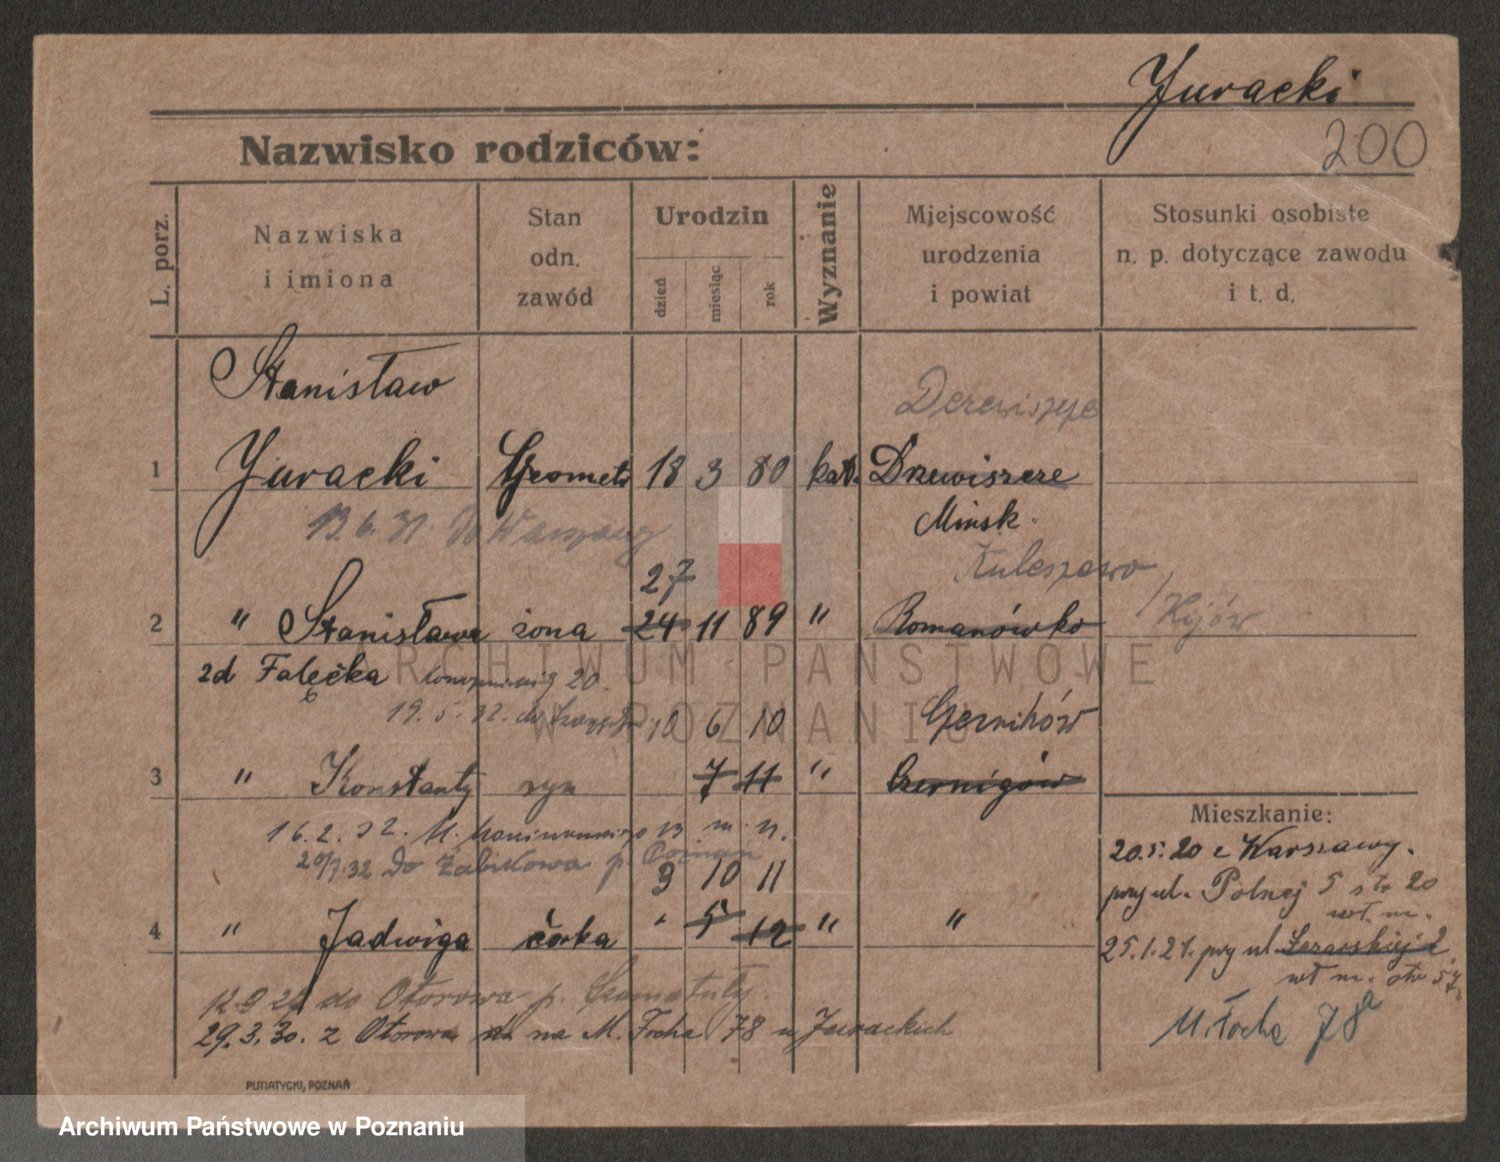 Juracki
200
Nazwisko rodziców:
L. porz.
Nazwiska
i imiona
Stan
odn.
zawód
Urodzin
dzień
miesiąc
rok
Wyznanie
Miejscowość
urodzenia
i powiat
Stosunki osobiste
n. p. dotyczące zawodu
i t. d.
Stanisław
Derewiszcze
1 Juracki Geometr 18 3 80 kat. Drzewiszcze
13.6.31. Do Warszawy
Mińsk
27
Kuleszowo / Kijów
2 " Stanisława żona 24 11 89 " Romanówko
zd Fałęcka 20.
19.5.32. do 10 6 10 Czernihów
3 " Konstanty syn 7 11 " Czernigów
Mieszkanie:
16.2.32. M.
20/7.32 Do Żabikowa p. Poznań
20.5.20 z Warszawy.
3 10 11
przy ul. Polnej 5 str 20
wł. m.
4 " Jadwiga córka " 5 12 " "
25.1.21. przy ul.
wł m.
12.9.27 do Otorowa p. Szamotuły
29.3.30. z Otorowa na M. Focha 78 u Jurackich
M. Focha 78a
PUTIATYCKI, POZNAŃ
ARCHIWUM PAŃSTWOWE
W POZNANIU
Archiwum Państwowe w Poznaniu